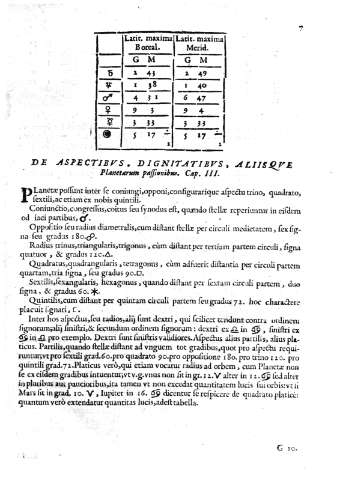 7
Latit. maxima Latit. maxima
Boreal. Merid.
G M G M
♄ 2 43 2 49
♃ 1 38 1 40
♂ 4 31 6 47
♀ 9 3 9 4
☿ 3 33 3 33
5 17 5 17
DE ASPECTIBVS, DIGNITATIBVS, ALIISQVE
Planetarum passionibus. Cap. III.
Planetæ possunt inter se coniungi, opponi, configurarique aspectu trino, quadrato,
sextili, ac etiam ex nobis quintili.
Coniunctio, congressus, coitus seu synodus est, quando stellæ reperiuntur in eisdem
od iaci partibus, ☌.
Oppositio seu radius diametralis, cum distant stellæ per circuli medietatem, sex sig-
na seu gradus 180. ☍.
Radius trinus, triangularis, trigonus, cùm distant per tertiam partem circuli, signa
quatuor, & gradus 120. △.
Quadratus, quadrangularis, tetragonus, cùm adfuerit distantia per circuli partem
quartam, tria signa, seu gradus 90. □.
Sextilis, sexangularis, hexagonus, quando distant per sextam circuli partem, duo
signa, & gradus 60. ⚹.
Quintilis, cum distant per quintam circuli partem seu gradus 72. hoc charactere
placuit signari, C.
Inter hos aspectus, seu radios, alij sunt dextri, qui scilicet tendunt contra ordinem
signorum, alij sinistri, & secundum ordinem signorum: dextri ex ♎ in ♋, sinistri ex
♋ in ♎ pro exemplo. Dextri sunt sinistris validiores. Aspectus alias partilis, alias pla-
ticus. Partilis, quando stellæ distant ad vnguem tot gradibus, quot pro aspectu requi-
runtur, vt pro sextili grad. 60. pro quadrato 90. pro oppositione 180. pro trino 120. pro
quintili grad. 72. Platicus verò, qui etiam vocatur radius ad orbem, cum Planetæ non
se ex eisdem gradibus intuentur, vt v.g. vnus non sit in gr. 12. ♈ alter in 12. ♋ sed alter
in pluribus aut paucioribus, ita tamen vt non excedat quantitatem lucis sui orbis: vt si
Mars sit in grad. 10. ♈, Iupiter in 16. ♋ dicentur se respicere de quadrato platicè:
quantum verò extendatur quantitas lucis, adest tabella.
G 10.